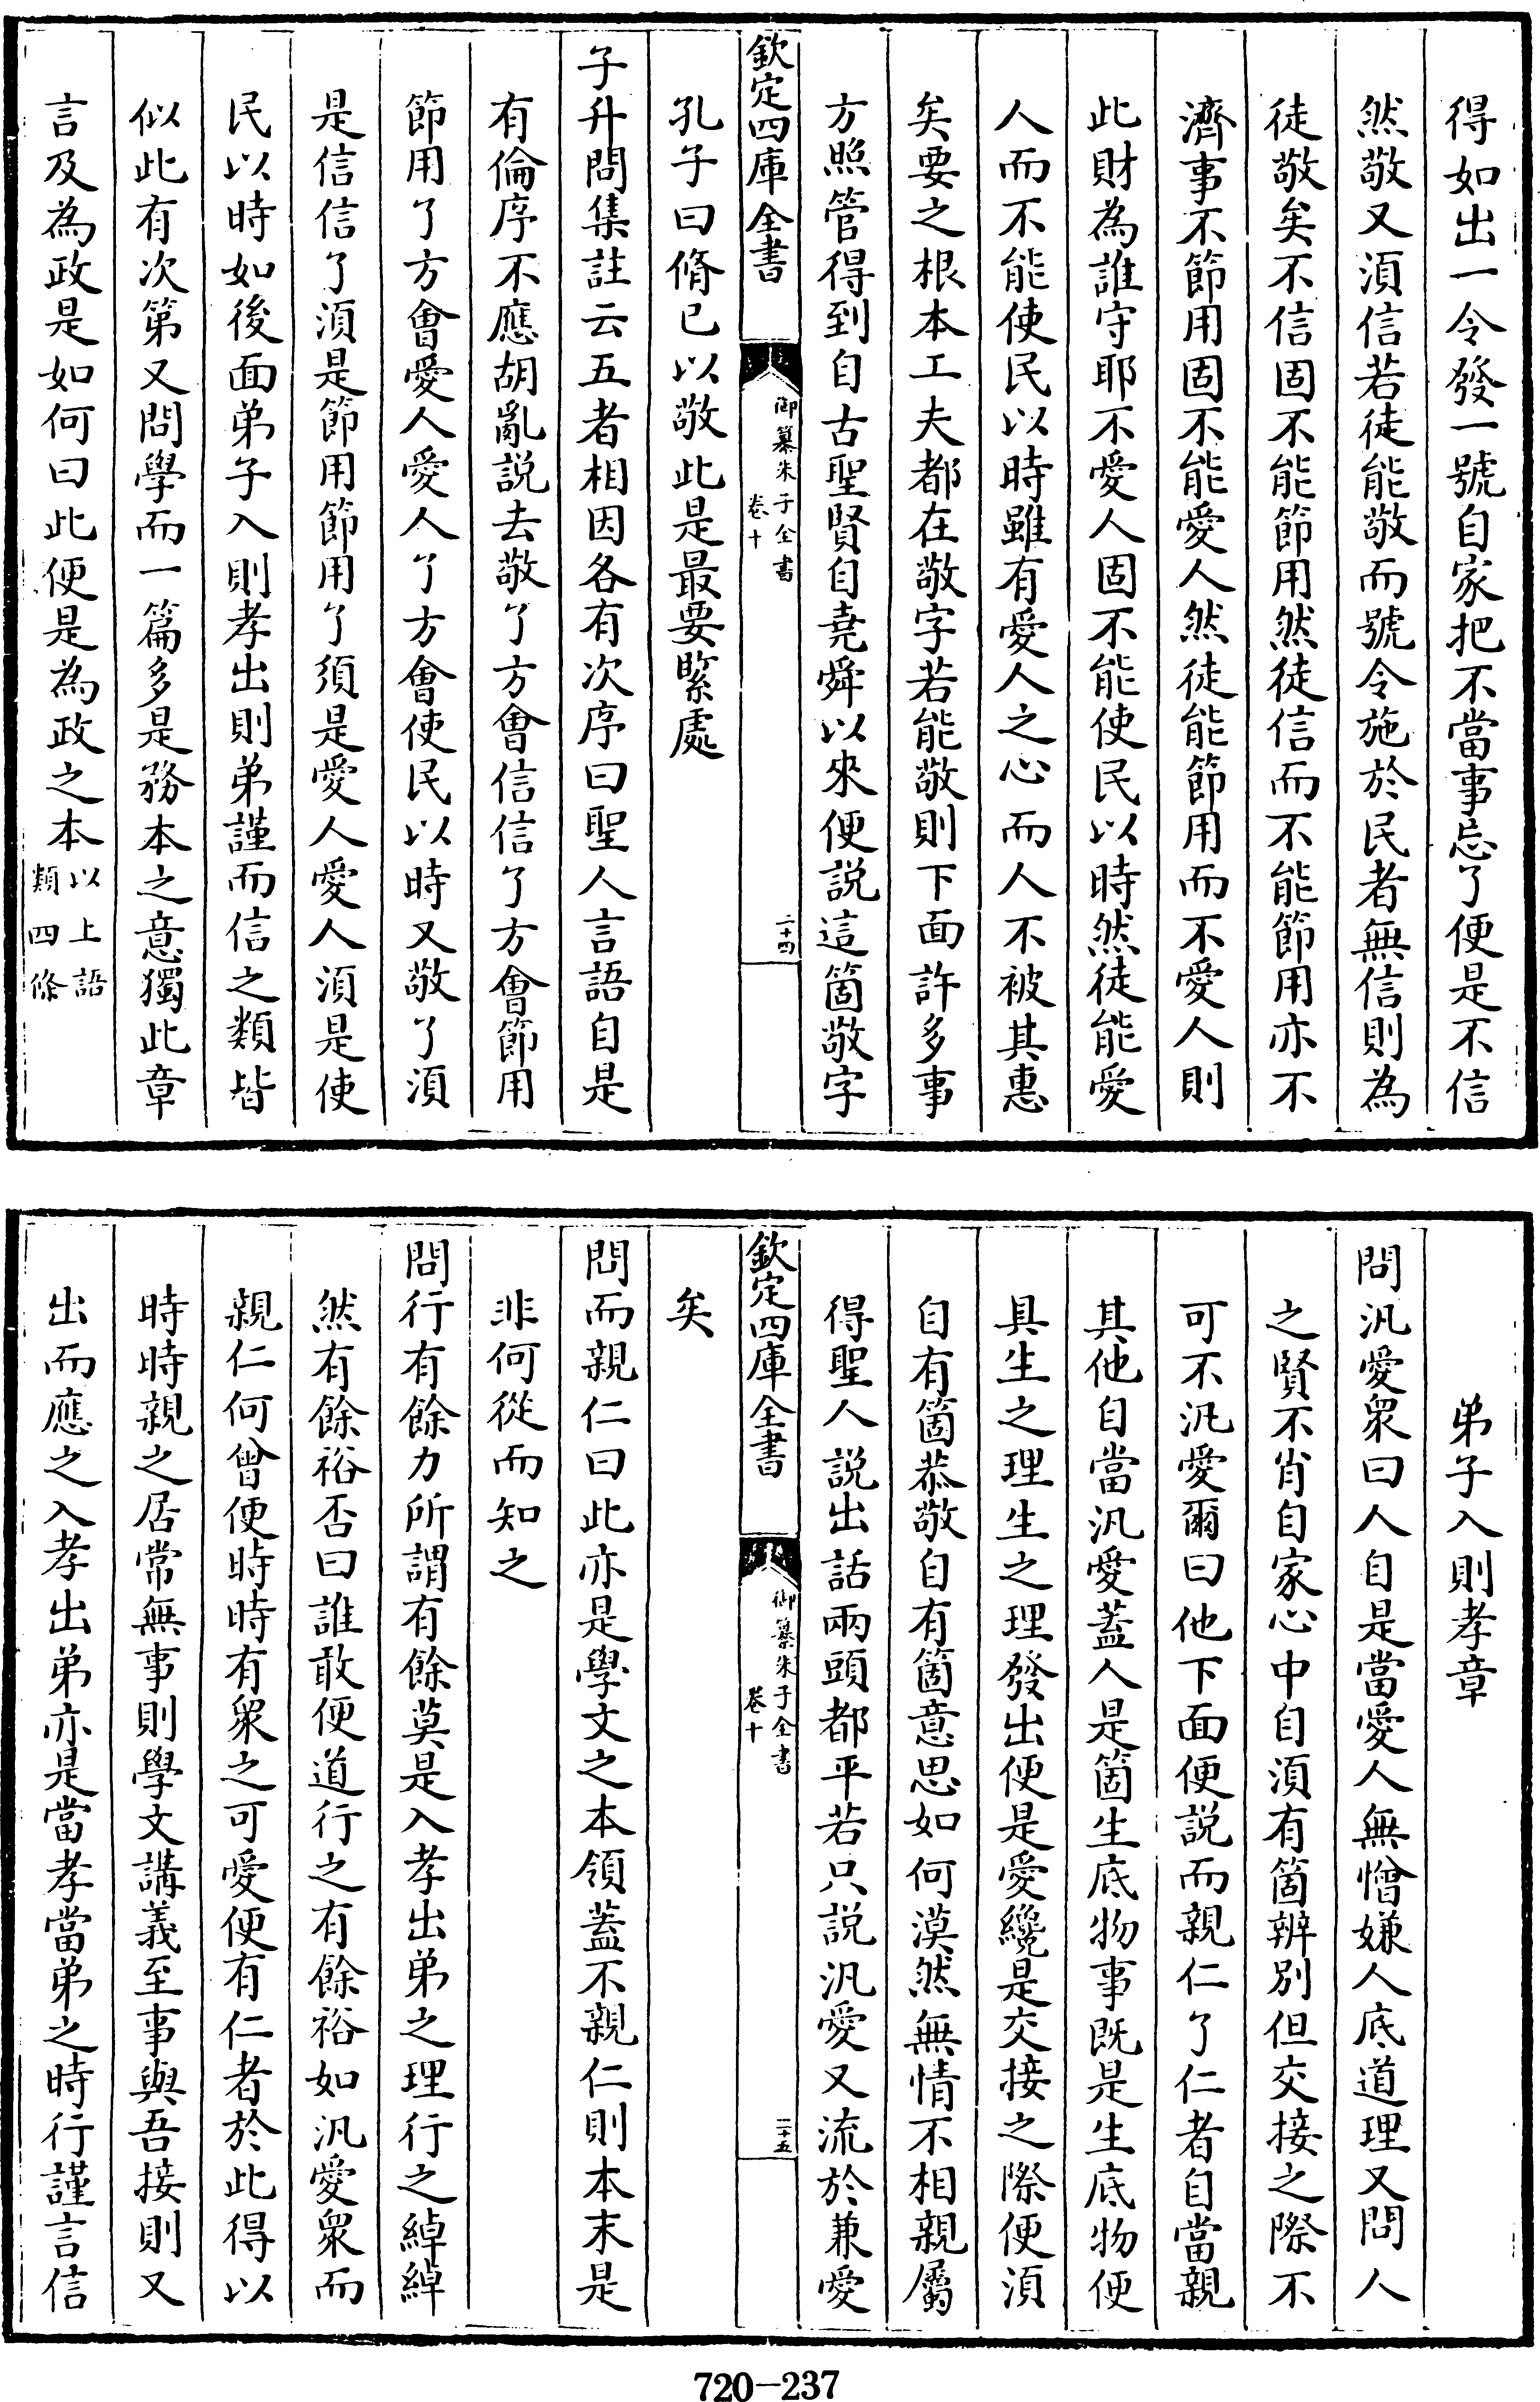 得如出一令發一號自家把不當事忘了便是不信
然敬又須信若徒能敬而號令施於民者無信則為
徒敬矣不信固不能節用然徒信而不能節用亦不
濟事不節用固不能愛人然徒能節用而不愛人則
此財為誰守耶不愛人固不能使民以時然徒能愛
人而不能使民以時雖有愛人之心而人不被其惠
矣要之根本工夫都在敬字若能敬則下面許多事
方照管得到自古聖賢自堯舜以來便說這箇敬字
欽定四庫全書
御纂朱子全書
卷十
二十四
孔子曰脩己以敬此是最要緊處
子升問集註云五者相因各有次序曰聖人言語自是
有倫序不應胡亂說去敬了方會信信了方會節用
節用了方會愛人愛人了方會使民以時又敬了須
是信信了須是節用節用了須是愛人愛人須是使
民以時如後面弟子入則孝出則弟謹而信之類皆
似此有次第又問學而一篇多是務本之意獨此章
言及為政是如何曰此便是為政之本以上語
類四條
弟子入則孝章
問汎愛衆曰人自是當愛人無憎嫌人底道理又問人
之賢不肖自家心中自須有箇辨別但交接之際不
可不汎愛爾曰他下面便說而親仁了仁者自當親
其他自當汎愛蓋人是箇生底物事既是生底物便
具生之理生之理發出便是愛纔是交接之際便須
自有箇恭敬自有箇意思如何漠然無情不相親屬
得聖人說出話兩頭都平若只說汎愛又流於兼愛
欽定四庫全書
御纂朱子全書
卷十
二十五
矣
問而親仁曰此亦是學文之本領蓋不親仁則本末是
非何從而知之
問行有餘力所謂有餘莫是入孝出弟之理行之綽綽
然有餘裕否曰誰敢便道行之有餘裕如汎愛衆而
親仁何曾便時時有衆之可愛便有仁者於此得以
時時親之居常無事則學文講義至事與吾接則又
出而應之入孝出弟亦是當孝當弟之時行謹言信
720-237